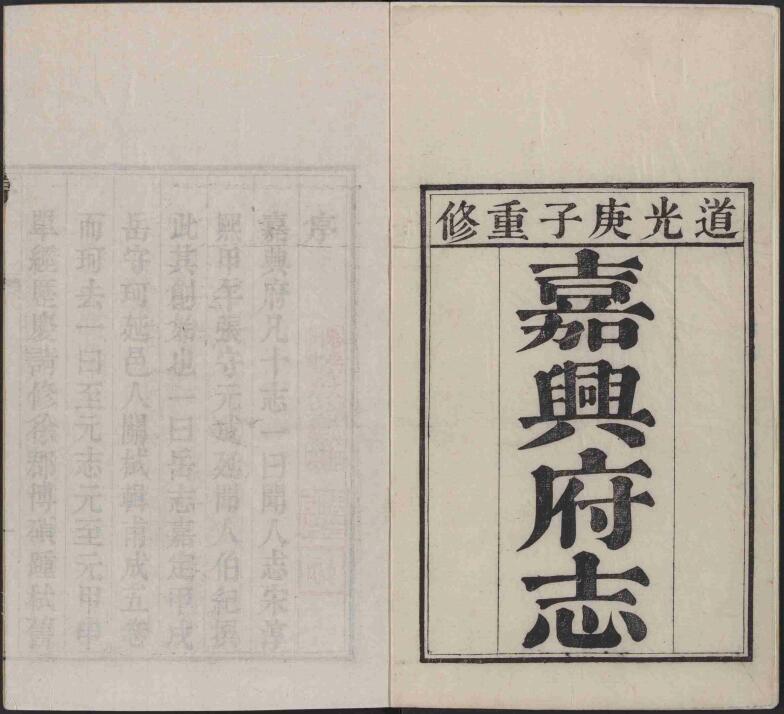 道光庚子重修
嘉興府志
序
嘉興府凡十志一曰聞人志宋淳
熙甲午張守元成延聞人伯紀撰
此其創始也一曰岳志嘉定甲戌
岳守珂延邑人關栻輯甫成五卷
而珂去一曰至元志元至元甲申
單經歷慶請修徐郡博碩踵栻舊